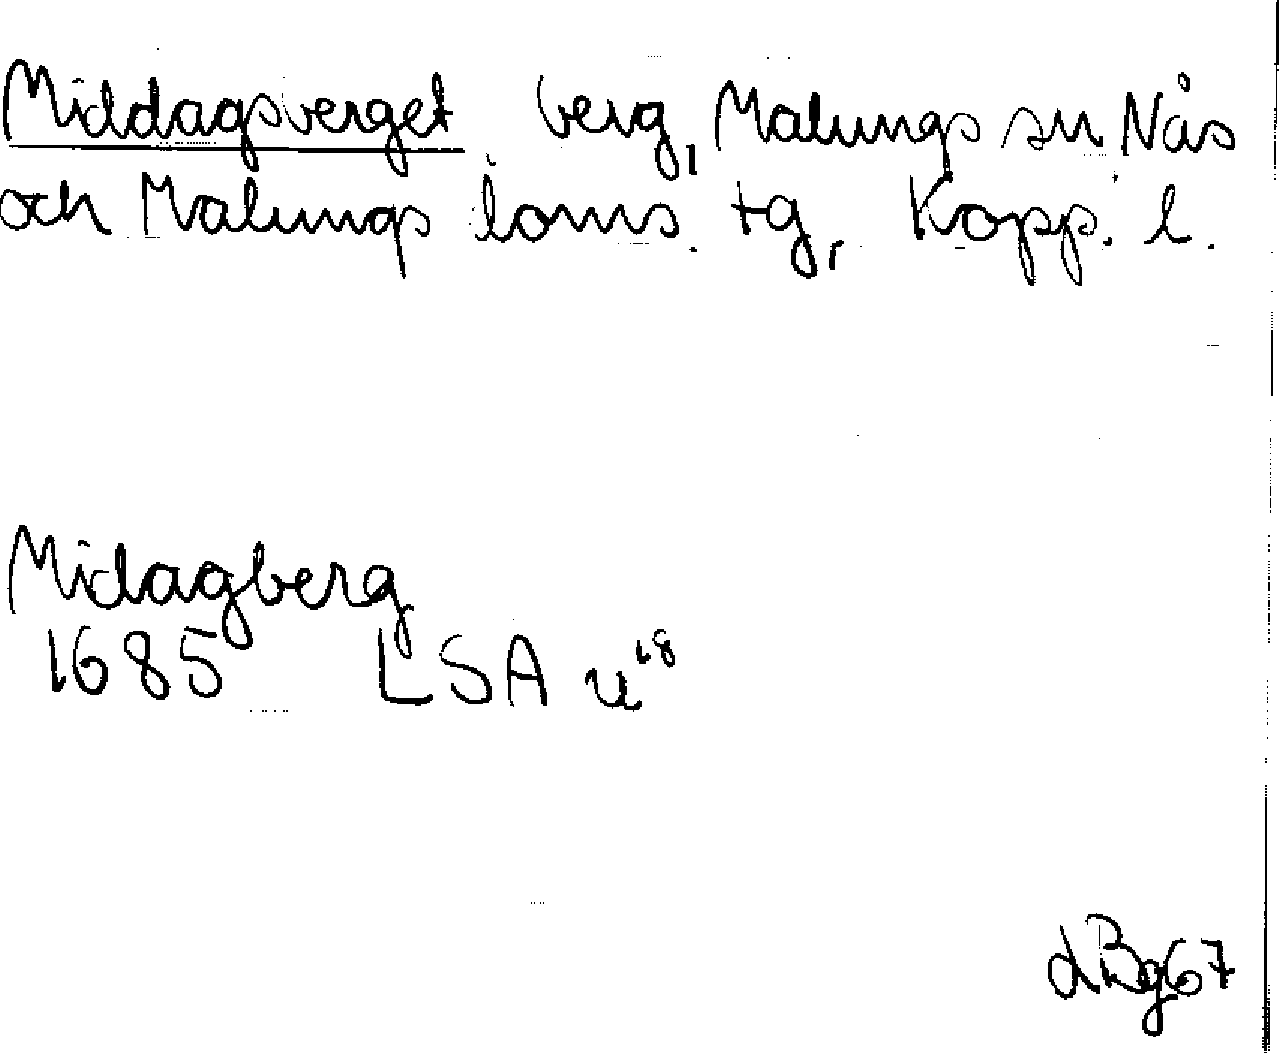 Middagsberget berg, Malungs sn Nås
och Malungs doms. tg, Kopp. l.
Midagberg
1685 LSA u¹⁸
dBg67